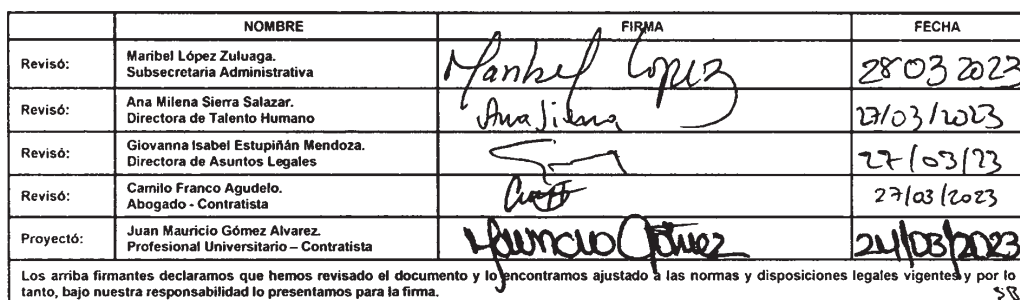 NOMBRE FIRMA FECHA
Revisó: Maribel López Zuluaga.
Subsecretaria Administrativa
Maribel López 28 03 2023
Revisó: Ana Milena Sierra Salazar.
Directora de Talento Humano
Ana Sierra 27/03/2023
Revisó: Giovanna Isabel Estupiñán Mendoza.
Directora de Asuntos Legales
27/03/23
Revisó: Camilo Franco Agudelo.
Abogado - Contratista
27/03/2023
Proyectó: Juan Mauricio Gómez Alvarez.
Profesional Universitario – Contratista
Mauricio Gómez 24/03/2023
Los arriba firmantes declaramos que hemos revisado el documento y lo encontramos ajustado a las normas y disposiciones legales vigentes y por lo
tanto, bajo nuestra responsabilidad lo presentamos para la firma.